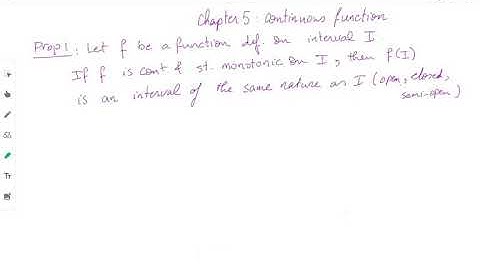 Chapter 5 : continuous function
Prop 1 : Let f be a function def on interval I
If f is cont & st. monotonic on I, then f(I)
is an interval of the same nature as I (open, closed,
semi-open)
Tr